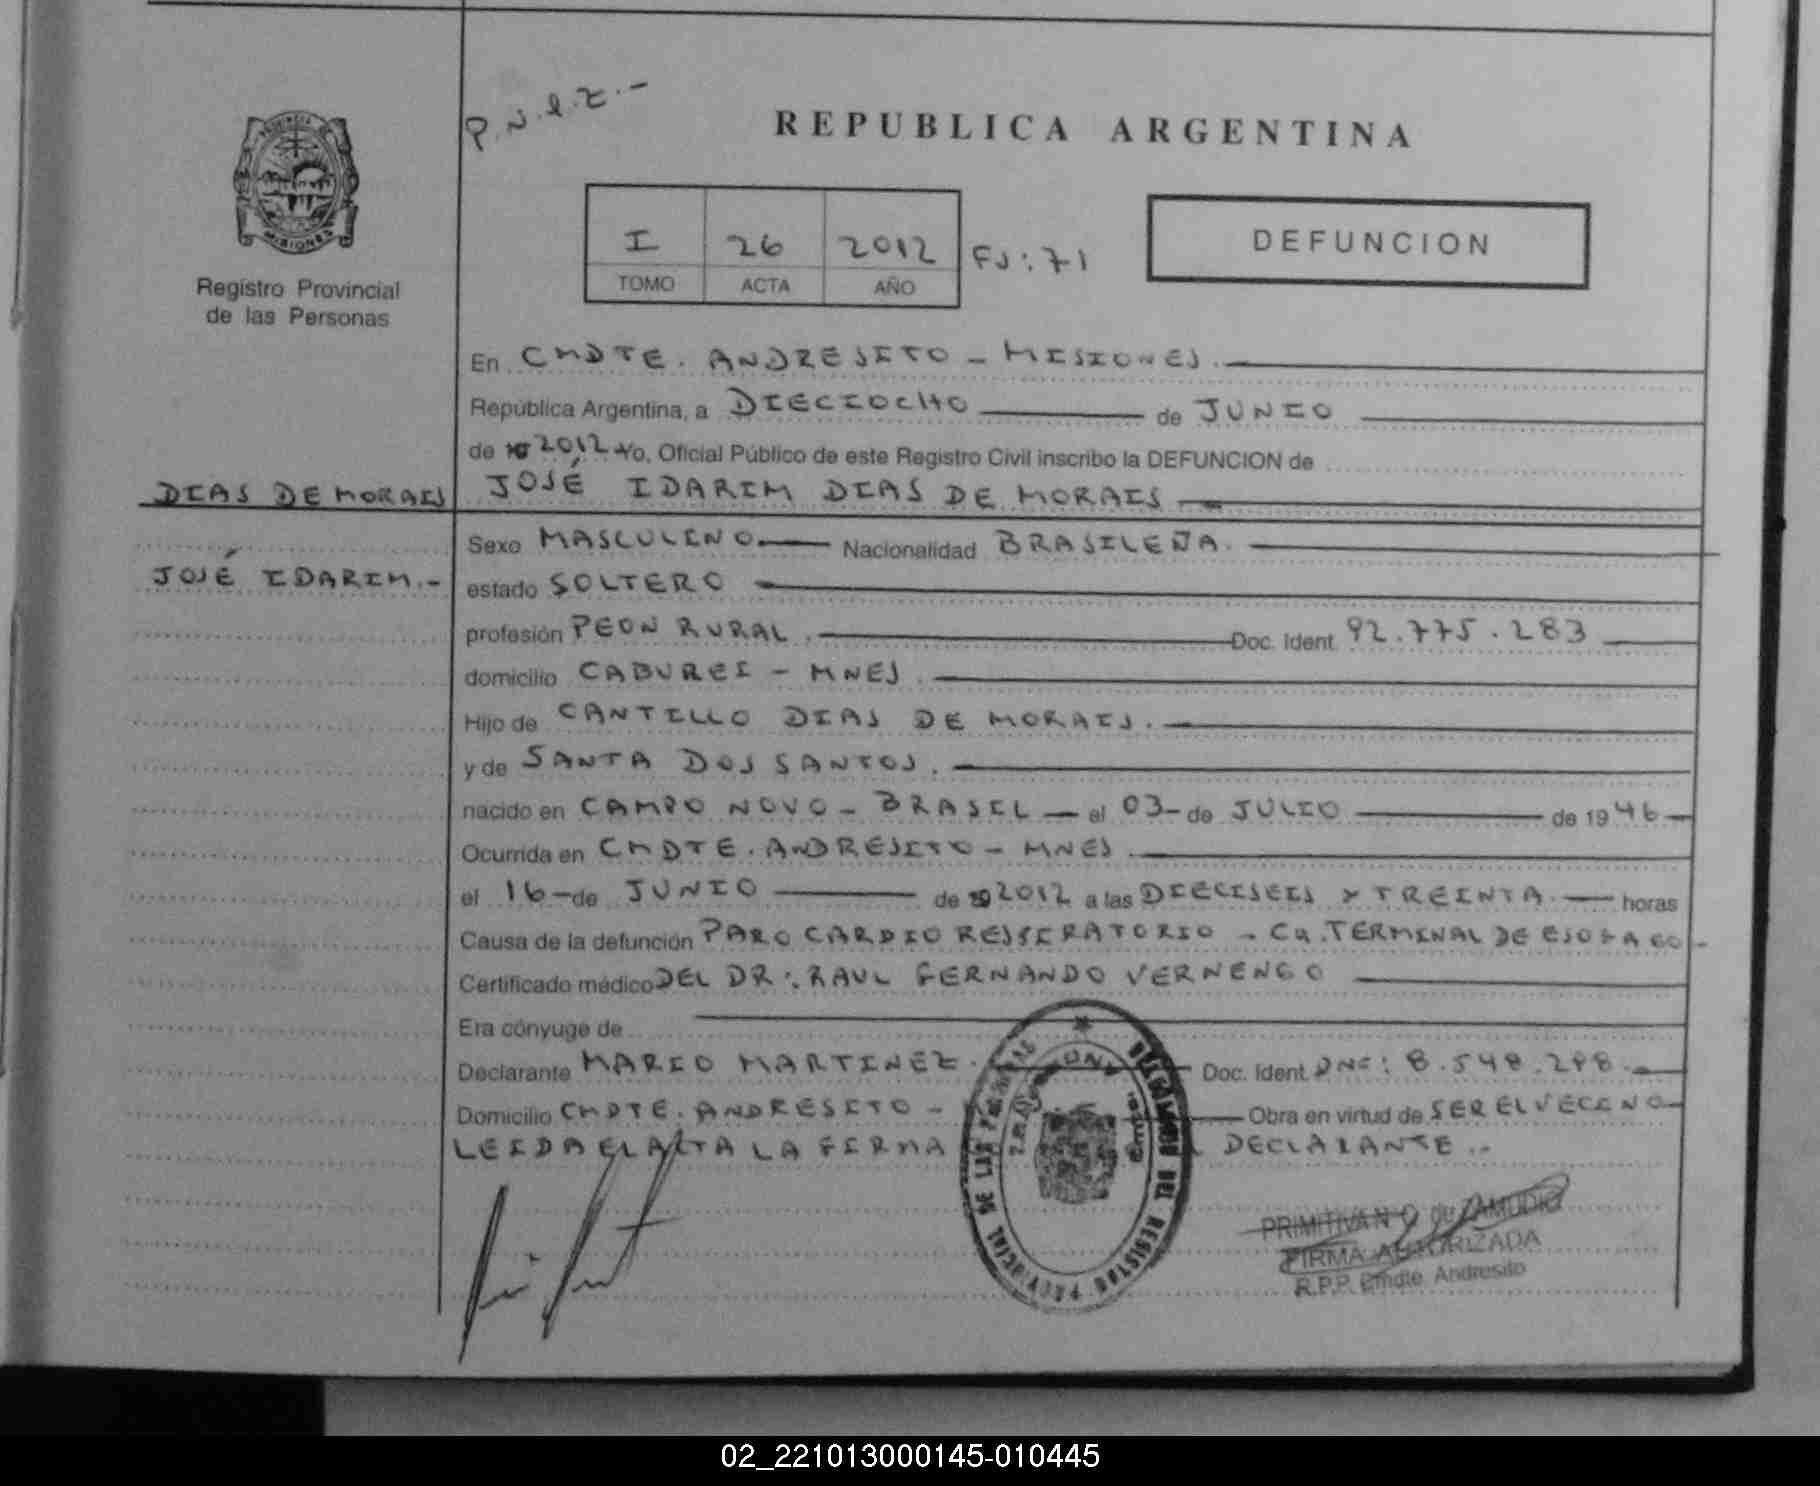 P.N.l.z.-
REPUBLICA ARGENTINA
PROVINCIA DE
MISIONES
Registro Provincial
de las Personas
I 26 2012 FJ: 71
TOMO ACTA AÑO
DEFUNCION
En CMDTE. ANDRESITO - MISIONES.
República Argentina, a DIECIOCHO de JUNIO
de 2012 Yo, Oficial Público de este Registro Civil inscribo la DEFUNCION de
DIAS DE MORAIS JOSÉ IDARIM DIAS DE MORAIS
Sexo MASCULINO Nacionalidad BRASILEÑA.
JOSÉ IDARIM.- estado SOLTERO
profesión PEON RURAL. Doc. Ident. 92.775.283
domicilio CABUREI - MNES.
Hijo de CANTILLO DIAS DE MORAIS.
y de SANTA DOS SANTOS.
nacido en CAMPO NOVO - BRASIL - el 03- de JULIO de 1946-
Ocurrida en CMDTE. ANDRESITO - MNES.
el 16- de JUNIO de 2012 a las DIECISEIS Y TREINTA. horas
Causa de la defunción PARO CARDIO RESPIRATORIO - Ca. TERMINAL DE ESOFAGO-
Certificado médico DEL DR: RAUL FERNANDO VERNENGO
Era cónyuge de
Declarante MARIO MARTINEZ. Doc. Ident. DNI: 8.548.298.-
Domicilio CMDTE. ANDRESITO - Obra en virtud de SER EL VECINO
LEIDA EL ACTA LA FIRMA DECLARANTE.-
DEL REGISTRO PROVINCIAL DE LAS PERSONAS
PRIMITIVA N O. de ZAMUDIO
FIRMA AUTORIZADA
R.P.P. Cmdte. Andresito
02_221013000145-010445